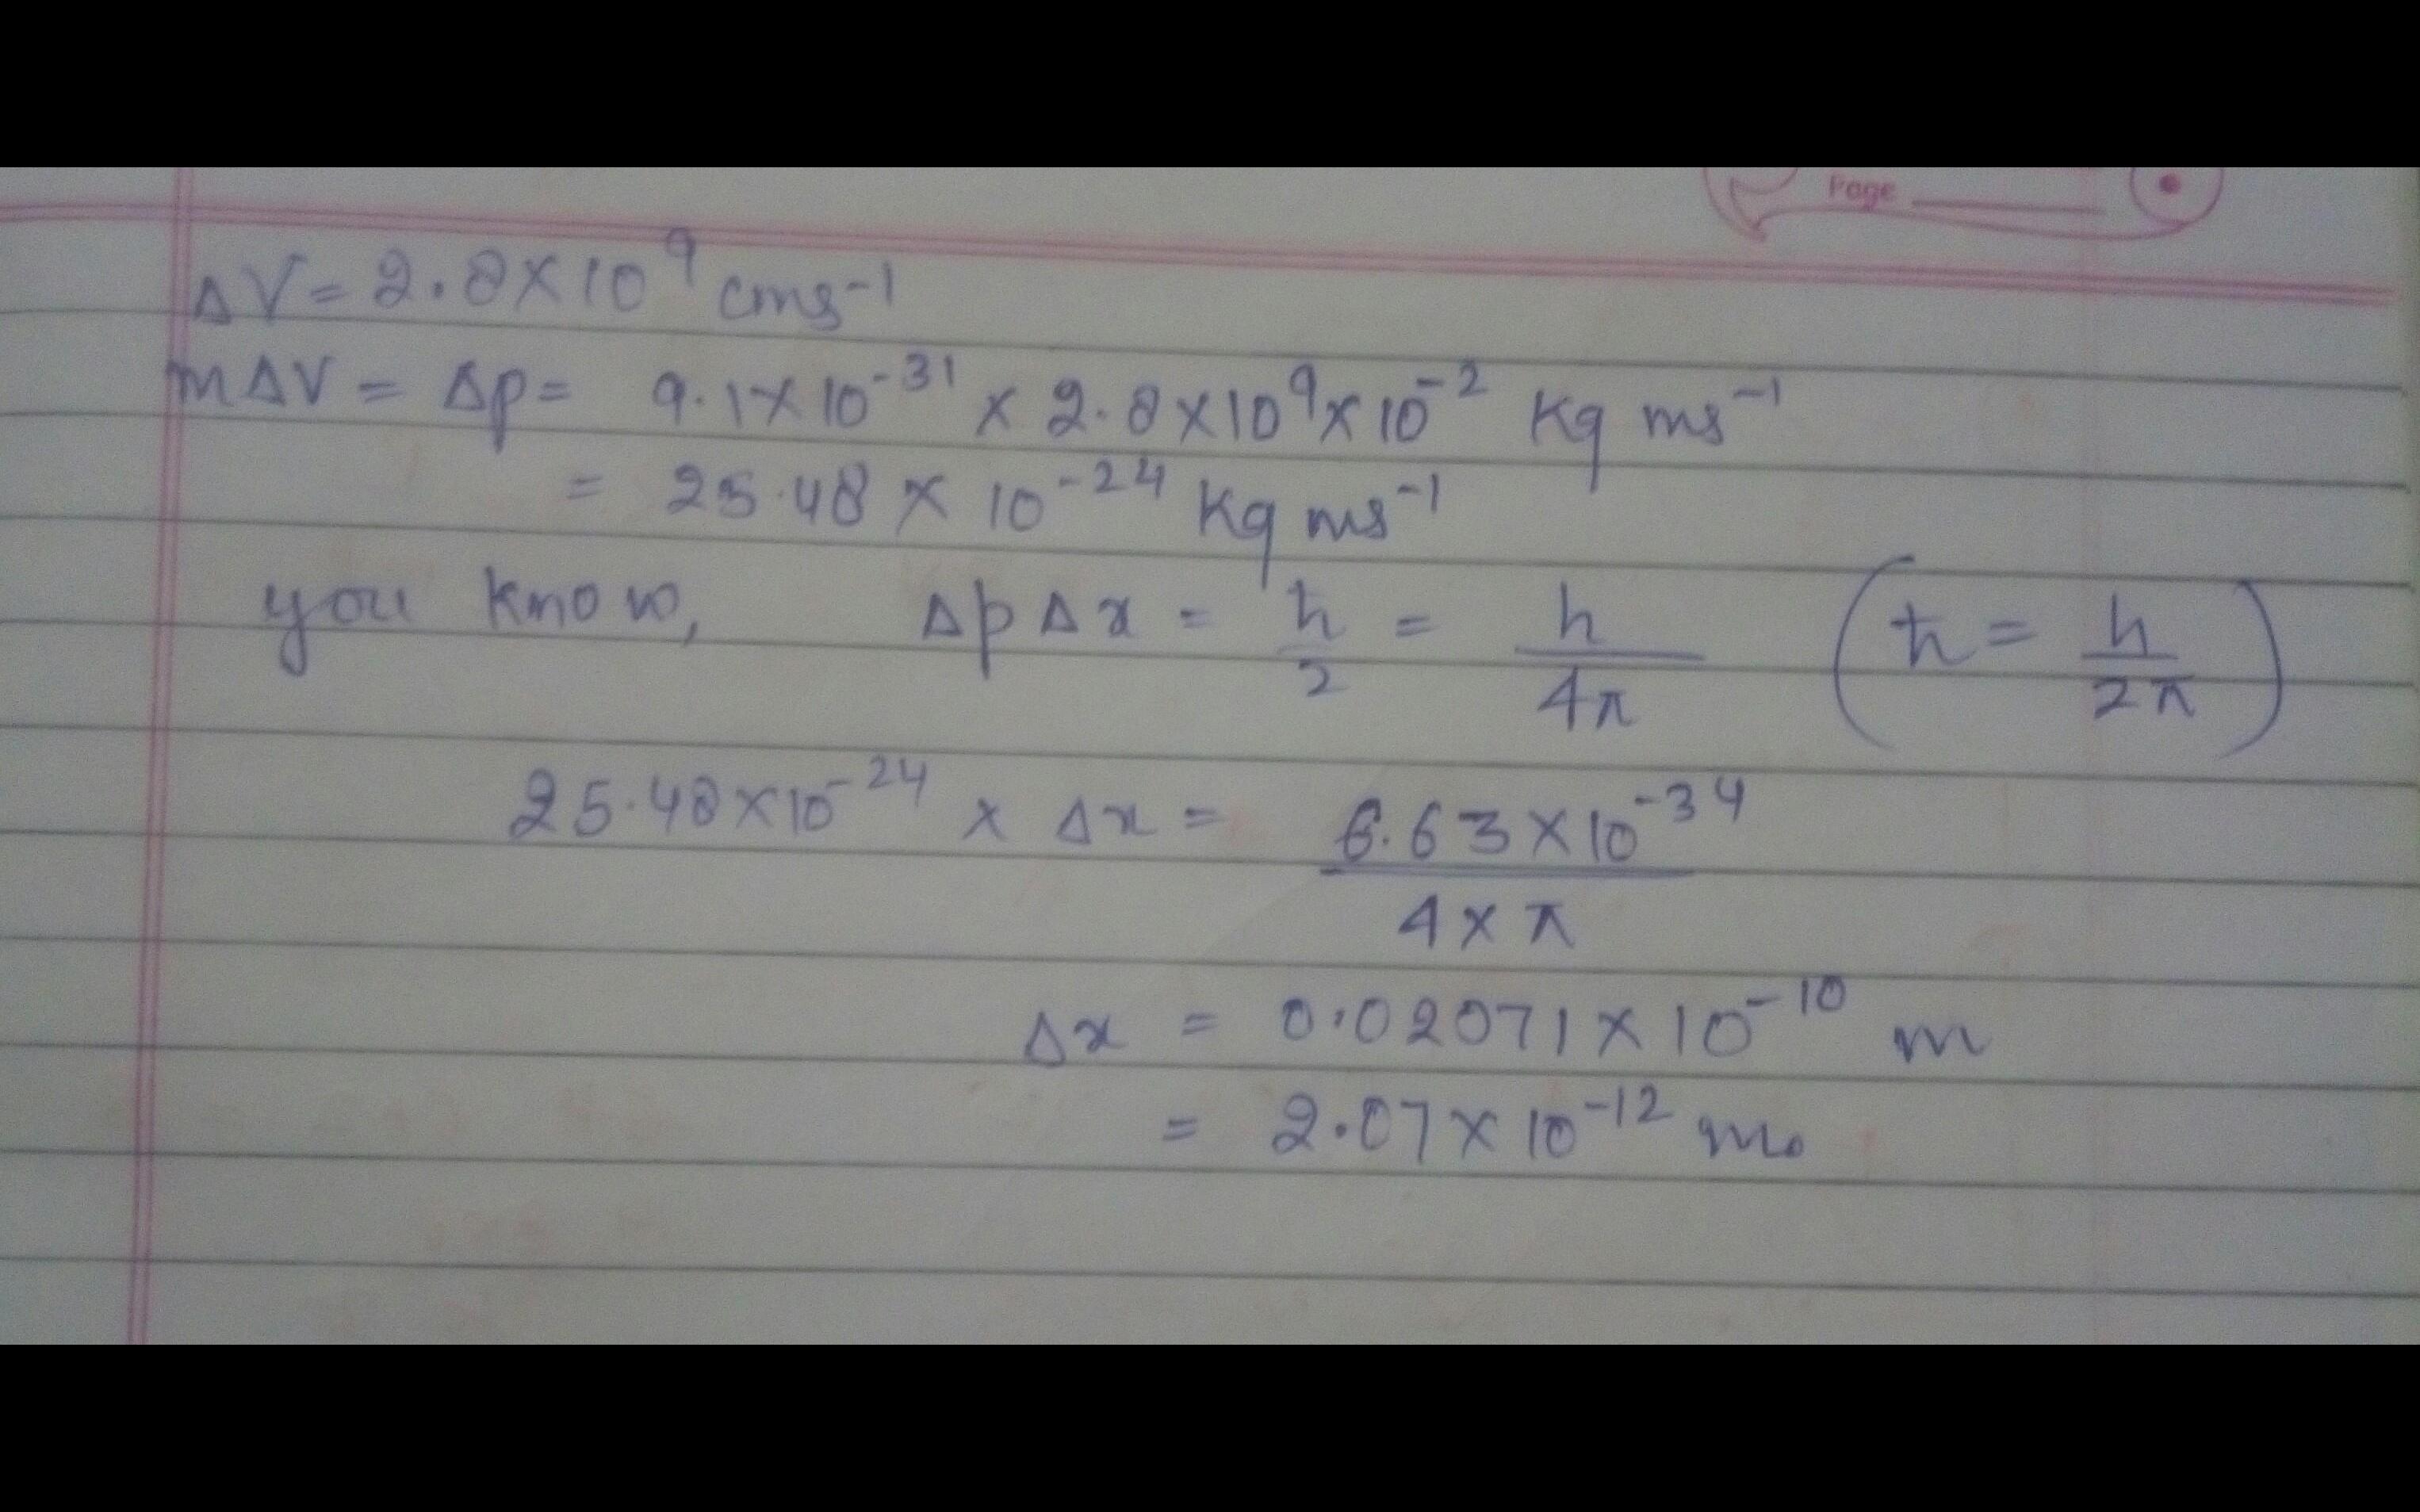 Page
ΔV = 2.8×10⁹ cms⁻¹
mΔV = Δp = 9.1×10⁻³¹ × 2.8×10⁹×10⁻² Kg ms⁻¹
= 25.48 × 10⁻²⁴ Kg ms⁻¹
you know, ΔpΔx = ħ/2 = h/4π (ħ = h/2π)
25.48×10⁻²⁴ × Δx = 6.63×10⁻³⁴/4×π
Δx = 0.02071×10⁻¹⁰ m
= 2.07×10⁻¹² m.